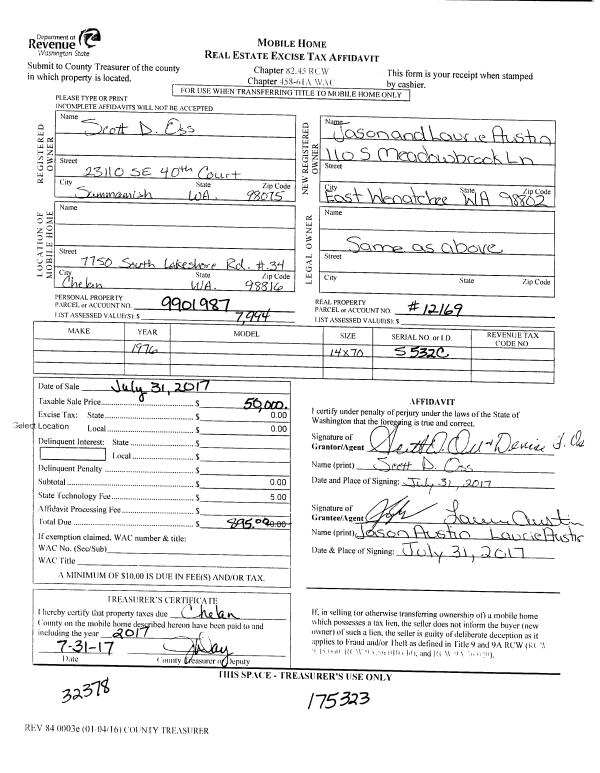 Department of
Revenue
Washington State
MOBILE HOME
REAL ESTATE EXCISE TAX AFFIDAVIT
Submit to County Treasurer of the county
in which property is located.
Chapter 82.45 RCW
Chapter 458-61A WAC
This form is your receipt when stamped
by cashier.
FOR USE WHEN TRANSFERRING TITLE TO MOBILE HOME ONLY
PLEASE TYPE OR PRINT
INCOMPLETE AFFIDAVITS WILL NOT BE ACCEPTED
REGISTERED OWNER
Name
Scott D. Oss
Street
23110 SE 40th Court
City State Zip Code
Sammamish WA. 98075
NEW REGISTERED OWNER
Name
Jason and Laurie Austin
110 S Meadowbrook Ln
Street
City State Zip Code
East Wenatchee WA 98802
LOCATION OF MOBILE HOME
Name
Street
7750 South Lakeshore Rd. #34
City State Zip Code
Chelan WA. 98816
LEGAL OWNER
Name
Same as above
Street
City State Zip Code
PERSONAL PROPERTY
PARCEL or ACCOUNT NO. 9901987
LIST ASSESSED VALUE(S): $ 7,994
REAL PROPERTY
PARCEL or ACCOUNT NO. #12169
LIST ASSESSED VALUE(S): $
MAKE YEAR MODEL SIZE SERIAL NO. or I.D. REVENUE TAX CODE NO
1976 14x70 S532C
Date of Sale July 31, 2017
Taxable Sale Price $ 50,000.
Excise Tax: State $ 0.00
Select Location Local $ 0.00
Delinquent Interest: State $
Local $
Delinquent Penalty $
Subtotal $ 0.00
State Technology Fee $ 5.00
Affidavit Processing Fee $
Total Due $ 895.00
If exemption claimed, WAC number & title:
WAC No. (Sec/Sub)
WAC Title
A MINIMUM OF $10.00 IS DUE IN FEE(S) AND/OR TAX.
AFFIDAVIT
I certify under penalty of perjury under the laws of the State of
Washington that the foregoing is true and correct.
Signature of
Grantor/Agent
Name (print) Scott D. Oss
Date and Place of Signing: July 31, 2017
Signature of
Grantee/Agent Laurie Austin
Name (print) Jason Austin Laurie Austin
Date & Place of Signing: July 31, 2017
TREASURER'S CERTIFICATE
I hereby certify that property taxes due Chelan
County on the mobile home described hereon have been paid to and
including the year 2017
7-31-17
Date County Treasurer or Deputy
If, in selling (or otherwise transferring ownership of) a mobile home
which possesses a tax lien, the seller does not inform the buyer (new
owner) of such a lien, the seller is guilty of deliberate deception as it
applies to Fraud and/or Theft as defined in Title 9 and 9A RCW
THIS SPACE - TREASURER'S USE ONLY
32378
175323
REV 84 0003e (01/04/16) COUNTY TREASURER